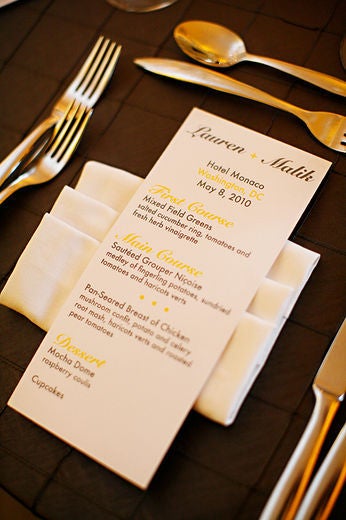 Lauren + Malik
Hotel Monaco
Washington, DC
May 8, 2010
First Course
Mixed Field Greens
salted cucumber ring, tomatoes and
fresh herb vinaigrette
Main Course
Sautéed Grouper Niçoise
medley of fingerling potatoes, sundried
tomatoes and haricots verts
Pan-Seared Breast of Chicken
mushroom confit, potato and celery
root mash, haricots verts and roasted
pear tomatoes
Dessert
Mocha Dome
raspberry coulis
Cupcakes